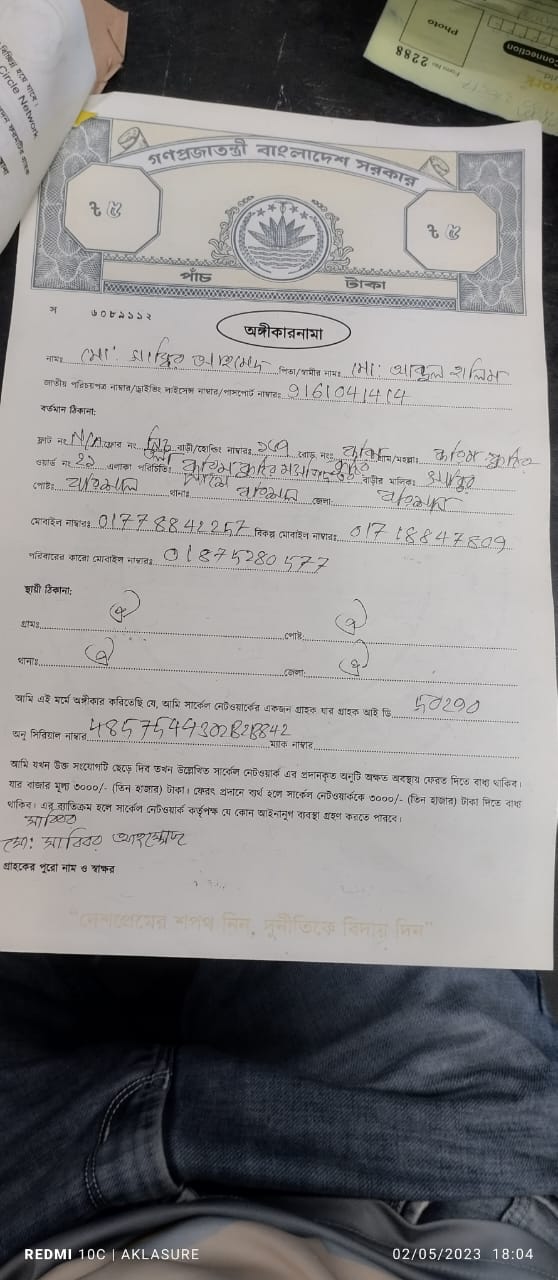 বিচ্ছিন্ন হয়ে যাবে।
Circle Network
Photo
Connection
Form No: 2288
গণপ্রজাতন্ত্রী বাংলাদেশ সরকার
৳ ৫
৳ ৫
পাঁচ টাকা
স ৬০৮৯১১২
অঙ্গীকারনামা
নামঃ মো: সাব্বির আহমেদ পিতা/স্বামীর নামঃ মো: আব্দুল হালিম
জাতীয় পরিচয়পত্র নাম্বার/ড্রাইভিং লাইসেন্স নাম্বার/পাসপোর্ট নাম্বারঃ 9161041414
বর্তমান ঠিকানা:
ফ্লাট নং N/A ফ্লোর নং বাড়ী/হোল্ডিং নাম্বারঃ রোড নংঃ গ্রাম/মহল্লাঃ
ওয়ার্ড নং এলাকা পরিচিতিঃ বাড়ীর মালিকঃ
পোষ্টঃ বরিশাল থানাঃ বরিশাল জেলা: বরিশাল
মোবাইল নাম্বারঃ 01778842257 বিকল্প মোবাইল নাম্বারঃ 01718847809
পরিবারের কারো মোবাইল নাম্বারঃ 01875280577
স্থায়ী ঠিকানা:
গ্রামঃ ঐ পোষ্ট: ঐ
থানাঃ ঐ জেলা: ঐ
আমি এই মর্মে অঙ্গীকার করিতেছি যে, আমি সার্কেল নেটওয়ার্কের একজন গ্রাহক যার গ্রাহক আই ডি 50290
অনু সিরিয়াল নাম্বার 48575449302B2B842 ম্যাক নাম্বার
আমি যখন উক্ত সংযোগটি ছেড়ে দিব তখন উল্লেখিত সার্কেল নেটওয়ার্ক এর প্রদানকৃত অনুটি অক্ষত অবস্থায় ফেরত দিতে বাধ্য থাকিব।
যার বাজার মূল্য ৩০০০/- (তিন হাজার) টাকা। ফেরৎ প্রদানে ব্যর্থ হলে সার্কেল নেটওয়ার্ককে ৩০০০/- (তিন হাজার) টাকা দিতে বাধ্য
থাকিব। এর ব্যতিক্রম হলে সার্কেল নেটওয়ার্ক কর্তৃপক্ষ যে কোন আইনানুগ ব্যবস্থা গ্রহণ করতে পারবে।
সাব্বির
মো: সাব্বির আহম্মেদ
গ্রাহকের পুরো নাম ও স্বাক্ষর
"দেশপ্রেমের শপথ নিন, দুর্নীতিকে বিদায় দিন"
REDMI 10C | AKLASURE 02/05/2023 18:04